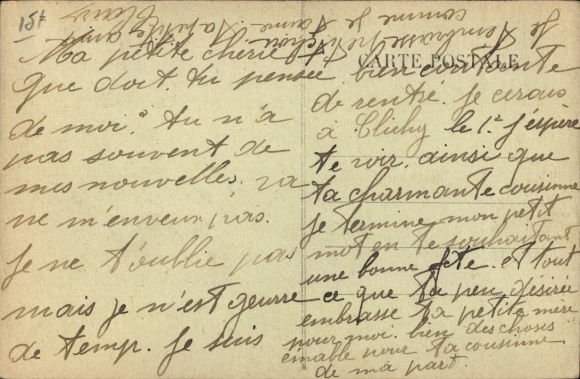 15t
CARTE POSTALE
Ma petite cherie
que doit tu pensée
de moi? tu n'a
pas souvent de
mes nouvelles. va
ne m'enveux pas.
je ne t'oublie pas
mais je n'est geurre
de temp. je suis
bien contente
de rentre. je cerais
à Clichy le 1e j'espère
te voir. ainsi que
ta charmante cousinne
je termine mon petit
mot en te souhaitant
une bonne fête. et tout
ce que ta peu désirée
embrasse ta petite mère
pour moi. bien des choses
eimable pour ta cousinne
de ma part.
Je t'embrasse
comme je t'aime
ta petite